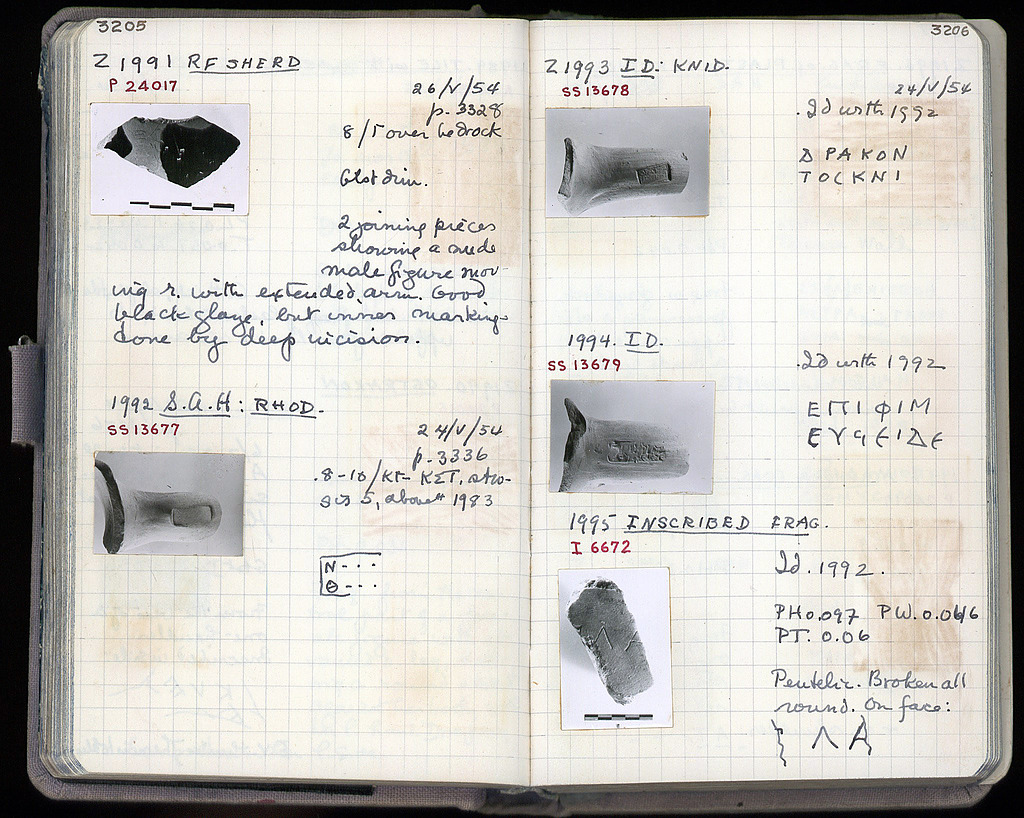 3205
Z 1991 RF SHERD
P 24017
26/V/54
p. 3328
8/Γ over bedrock
2 joining pieces
showing a nude
male figure mov-
ing r. with extended arm. Good
black glaze, but inner marking
done by deep incision.
1992 S.A.H: RHOD.
SS 13677
24/V/54
p. 3336
above # 1983
N - - -
Θ - - -
3206
Z 1993 ID: KNID.
SS 13678
24/V/54
Id with 1992
Δ Ρ Α Κ Ο Ν
Τ Ο C Κ Ν Ι
1994. ID.
SS 13679
Id with 1992
Ε Π Ι Φ Ι Μ
1995 INSCRIBED FRAG.
I 6672
Id. 1992.
PH 0.097 PW. 0.066
PT. 0.06
Pentelic. Broken all
round. On face:
Λ Α